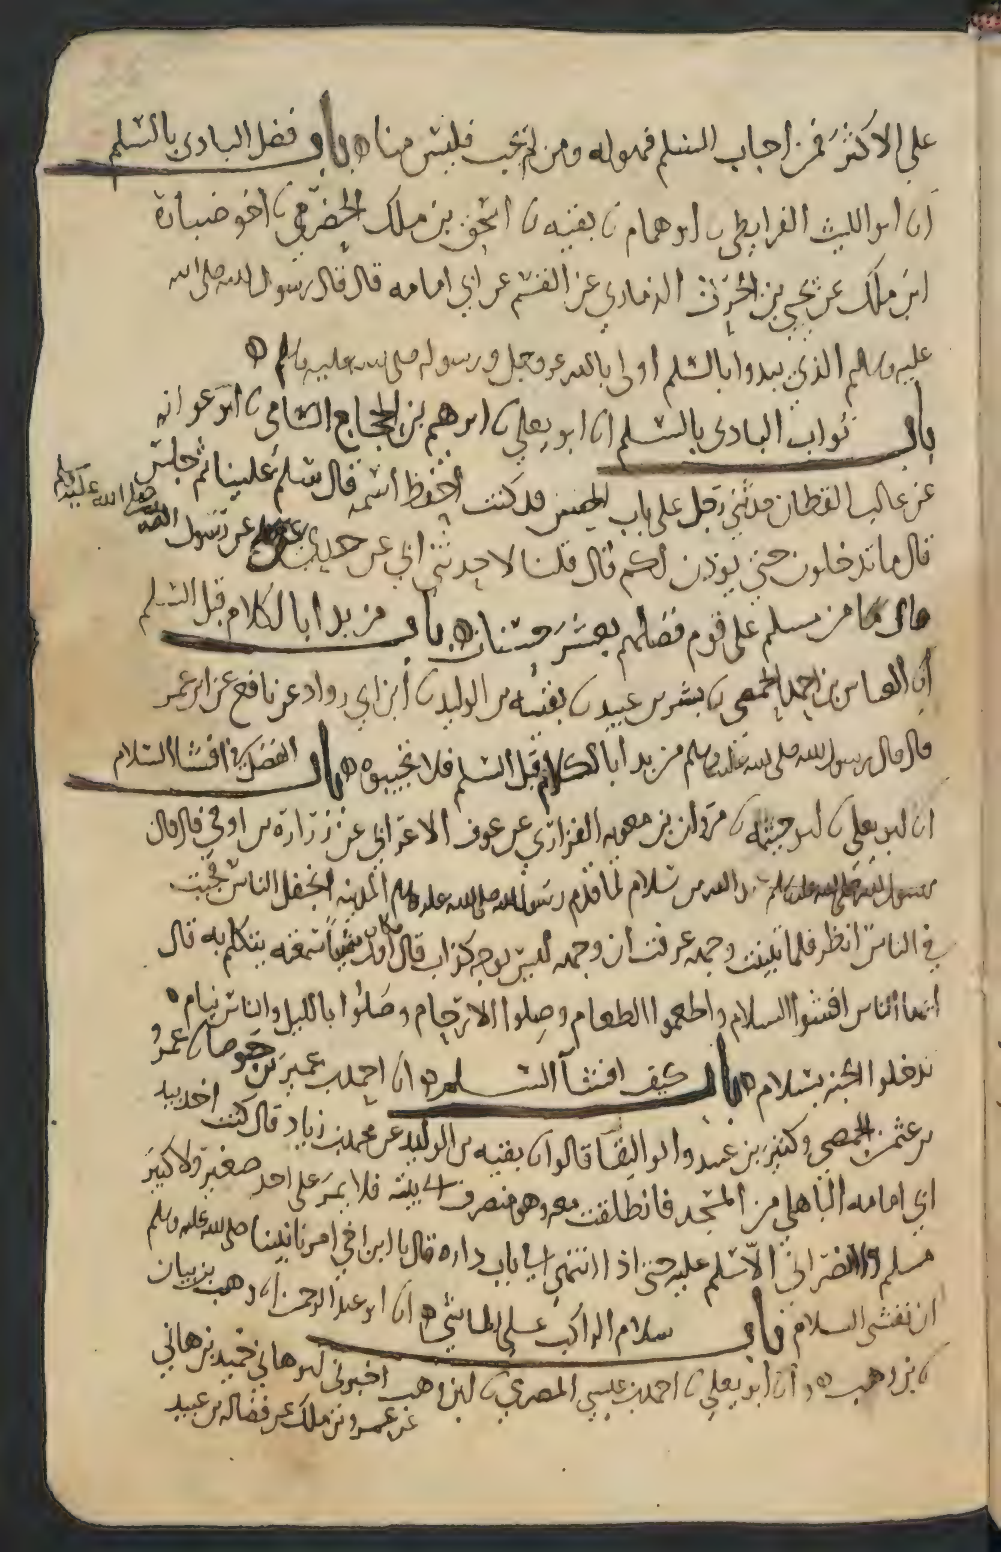 على الاكثر فمن اجاب السلم فهو له ومن لم يجب فليس منا ه باب فضل البادى بالسلم
ابو الليث الفرايضي ابو همام بقيه اسحق بن ملك الحضرمي اخو ضبارة
ابن ملك عن يحيى بن الحرث الذماري عن القسم عن ابي امامه قال قال رسول الله صلى الله
عليه وسلم الذي يبدوا بالسلم اولى بالله عز وجل ورسوله صلى الله عليه وسلم ه
باب ثواب البادى بالسلم ابو يعلى ابرهيم بن الحجاج الشامي ابو عوانه
عن غالب القطان حدثني رجل على باب الحسن قد كنت احفظ اسمه قال سلم علينا ثم جلس
قال ما تدخلون حتى يوذن لكم قال قلنا لا حدثني ابي عن جدي عن رسول الله صلى الله عليه وسلم
قال ما من مسلم على قوم فضلهم بعشر حسنات ه باب من بدا بالكلام قبل السلم
العباس بن احمد الحمصي بشر بن عبيد بقيه بن الوليد ابن ابي رواد عن نافع عن ابن عمر
قال قال رسول الله صلى الله عليه وسلم من بدا بالكلام قبل السلم فلا تجيبوه ه باب الفضل في افشا السلام
ابو يعلى ابو خيثمه مروان بن معويه الفزاري عن عوف الاعرابي عن زرارة بن اوفى قال قال
عبد الله بن سلام لما قدم رسول الله صلى الله عليه وسلم المدينه انجفل الناس فجيت
في الناس انظر فلما تبينت وجهه عرفت ان وجهه ليس بوجه كذاب قال فكان اول شي سمعته يتكلم به قال
ايها الناس افشوا السلام واطعموا الطعام وصلوا الارحام وصلوا بالليل والناس نيام ه
تدخلوا الجنه بسلام ه باب كيف افشآ السلم ه احمد بن عمير بن جوصا عمرو
بن عثمن الحمصي وكثير بن عبيد وابو التقا قالوا بقيه بن الوليد عن محمد بن زياد قال كنت اخذ بيد
ابي امامه الباهلي من المسجد فانطلقت معه وهو منصرف الى بيته فلا يمر على احد صغير ولا كبير
مسلم ولا نصراني الا سلم عليه حتى اذا انتهى الى باب داره قال يا ابن اخي امرنا نبينا صلى الله عليه وسلم
ان نفشى السلام باب سلام الراكب على الماشي ه ابو عبد الرحمن وهب بن بيان
بن وهب ه ابو يعلى احمد بن عيسى المصري ابن وهب اخبرني ابو هاني حميد بن هاني
عن عمرو بن ملك عن فضاله بن عبيد